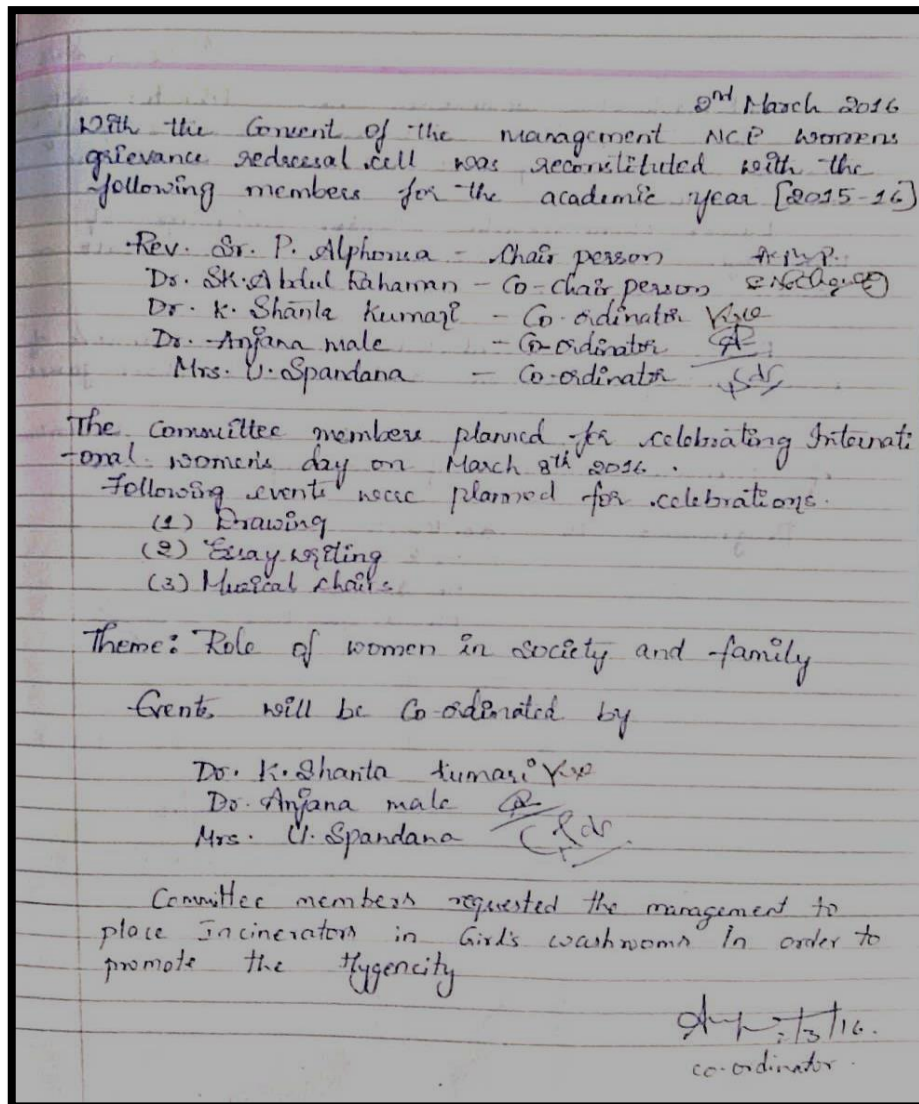 2nd March 2016
With the Consent of the management NCP womens
grievance redressal cell was reconstituted with the
following members for the academic year [2015-16]
Rev. Sr. P. Alphonsa - Chair person
Dr. SK. Abdul Rahaman - Co-chair person
Dr. K. Shanta Kumari - Co-ordinator
Dr. Anjana male - Co-ordinator
Mrs. U. Spandana - Co-ordinator
The Committee members planned for celebrating Internati
-onal women's day on March 8th 2016.
Following events were planned for celebrations.
(1) Drawing
(2) Essay writing
(3) Musical chairs
Theme: Role of women in society and family
Events will be Co-ordinated by
Dr. K. Shanta Kumari
Dr. Anjana male
Mrs. U. Spandana
Committee members requested the management to
place Incinerators in Girl's washrooms In order to
promote the Hygencity
co-ordinator.